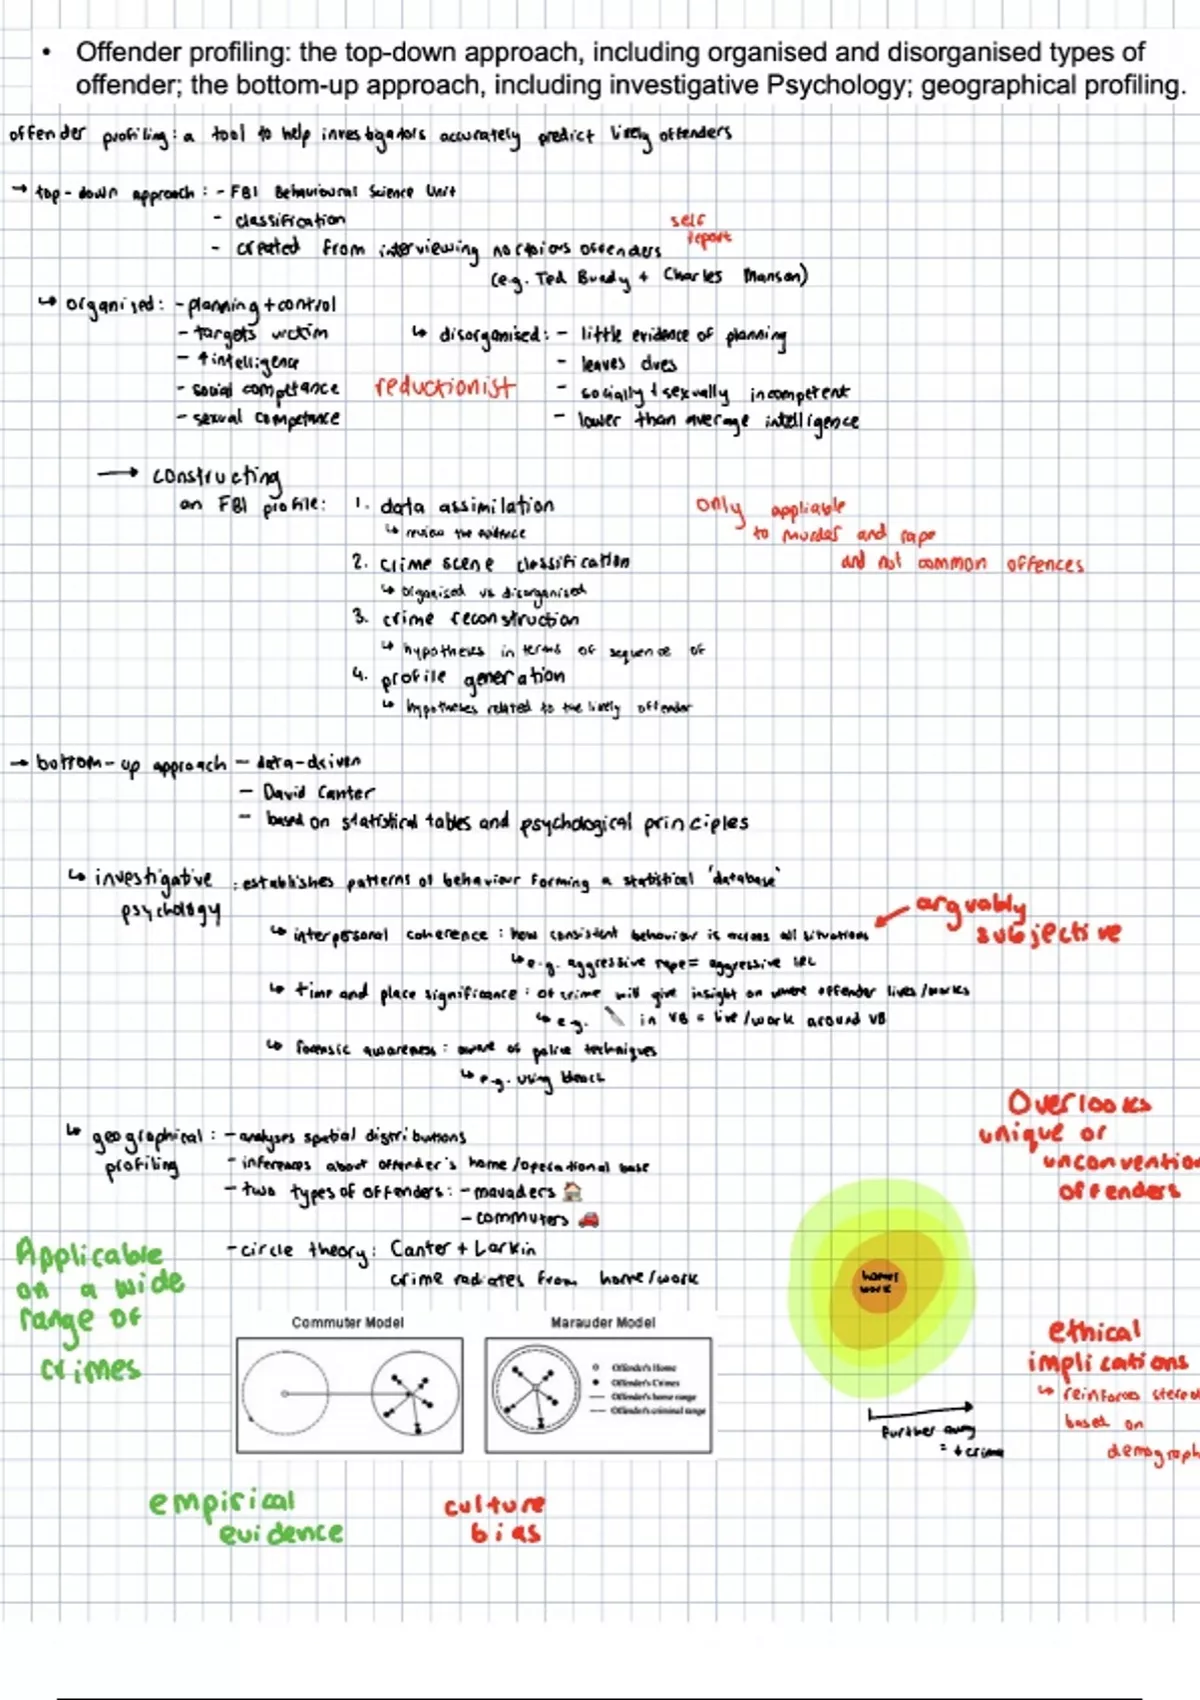 • Offender profiling: the top-down approach, including organised and disorganised types of
offender; the bottom-up approach, including investigative Psychology; geographical profiling.
offender profiling: a tool to help investigators accurately predict likely offenders
→ top-down approach: - FBI Behavioural Science Unit
- classification
- created from interviewing notorious offenders
self
report
(e.g. Ted Bundy + Charles Manson)
↳ organised: - planning + control
- targets victim
- ↑ intelligence
- social competance
- sexual competance
reductionist
↳ disorganised: - little evidence of planning
- leaves clues
- socially + sexually incompetent
- lower than average intelligence
→ constructing
an FBI profile:
1. data assimilation
↳ review the evidence
2. crime scene classification
↳ organised vs disorganised
3. crime reconstruction
↳ hypotheses in terms of sequence of
4. profile generation
↳ hypotheses related to the likely offender
only appliable
to murder and rape
and not common offences
→ bottom-up approach - data-driven
- David Canter
- based on statistical tables and psychological principles
↳ investigative
psychology
: establishes patterns of behaviour forming a statistical 'database'
↳ interpersonal coherence: how consistent behaviour is across all situations
↳ e.g. aggressive rape = aggressive IRL
arguably
subjective
↳ time and place significance: of crime will give insight on where offender lives/works
↳ e.g. 🔪 in VB = live/work around VB
↳ forensic awareness: aware of police techniques
↳ e.g. using bleach
↳ geographical
profiling
: - analyses spatial distributions
- inferences about offender's home/operational base
- two types of offenders: - maraders 🏠
- commuters 🚗
- circle theory: Canter + Larkin
crime radiates from home/work
Overlooks
unique or
unconvention
offenders
Applicable
on a wide
range of
crimes
home/
work
Commuter Model
Marauder Model
Offender's Home
Offender's Crimes
Offender's home range
Offender's criminal range
further away
= ↓ crime
ethical
implications
↳ reinforces stereo
based on
demograph
empirical
evidence
culture
bias